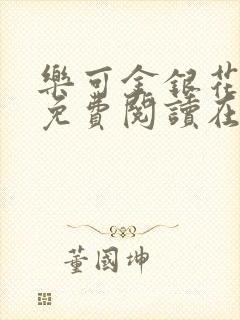 樂可金銀花
免費閱讀在
董國坤